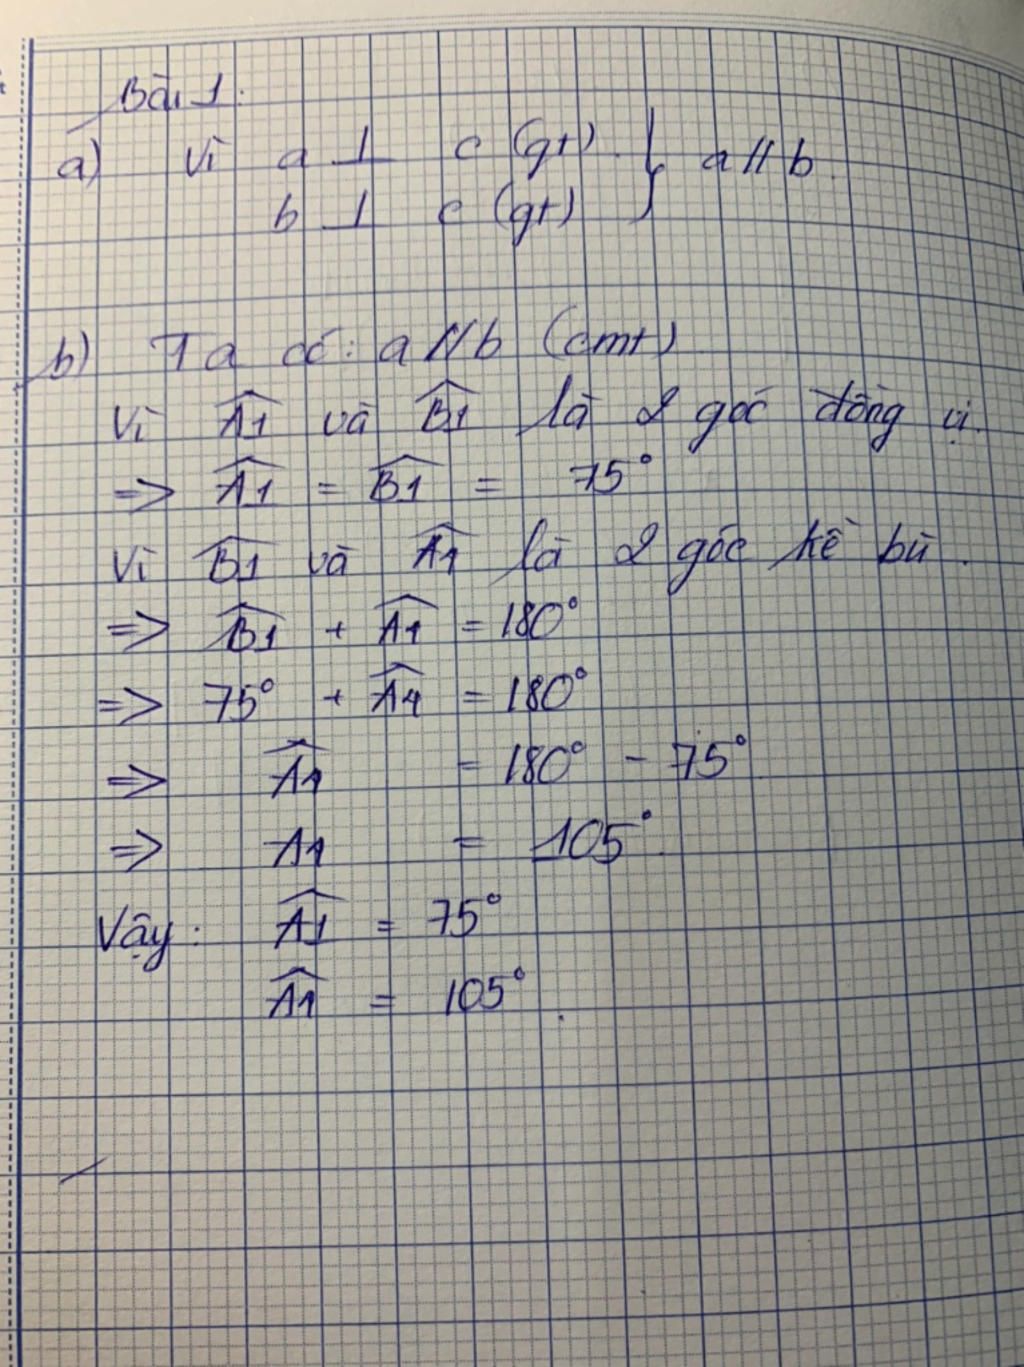 Bài 1:
a) Vì a ⊥ c (gt) } a // b.
b ⊥ c (gt)
b) Ta có: a // b (cmt)
Vì Â1 và B̂1 là 2 góc đồng vị.
=> Â1 = B̂1 = 75°
Vì B̂1 và Â4 là 2 góc kề bù.
=> B̂1 + Â4 = 180°
=> 75° + Â4 = 180°
=> Â4 = 180° - 75°
=> A4 = 105°.
Vậy: Â1 = 75°
Â4 = 105°.